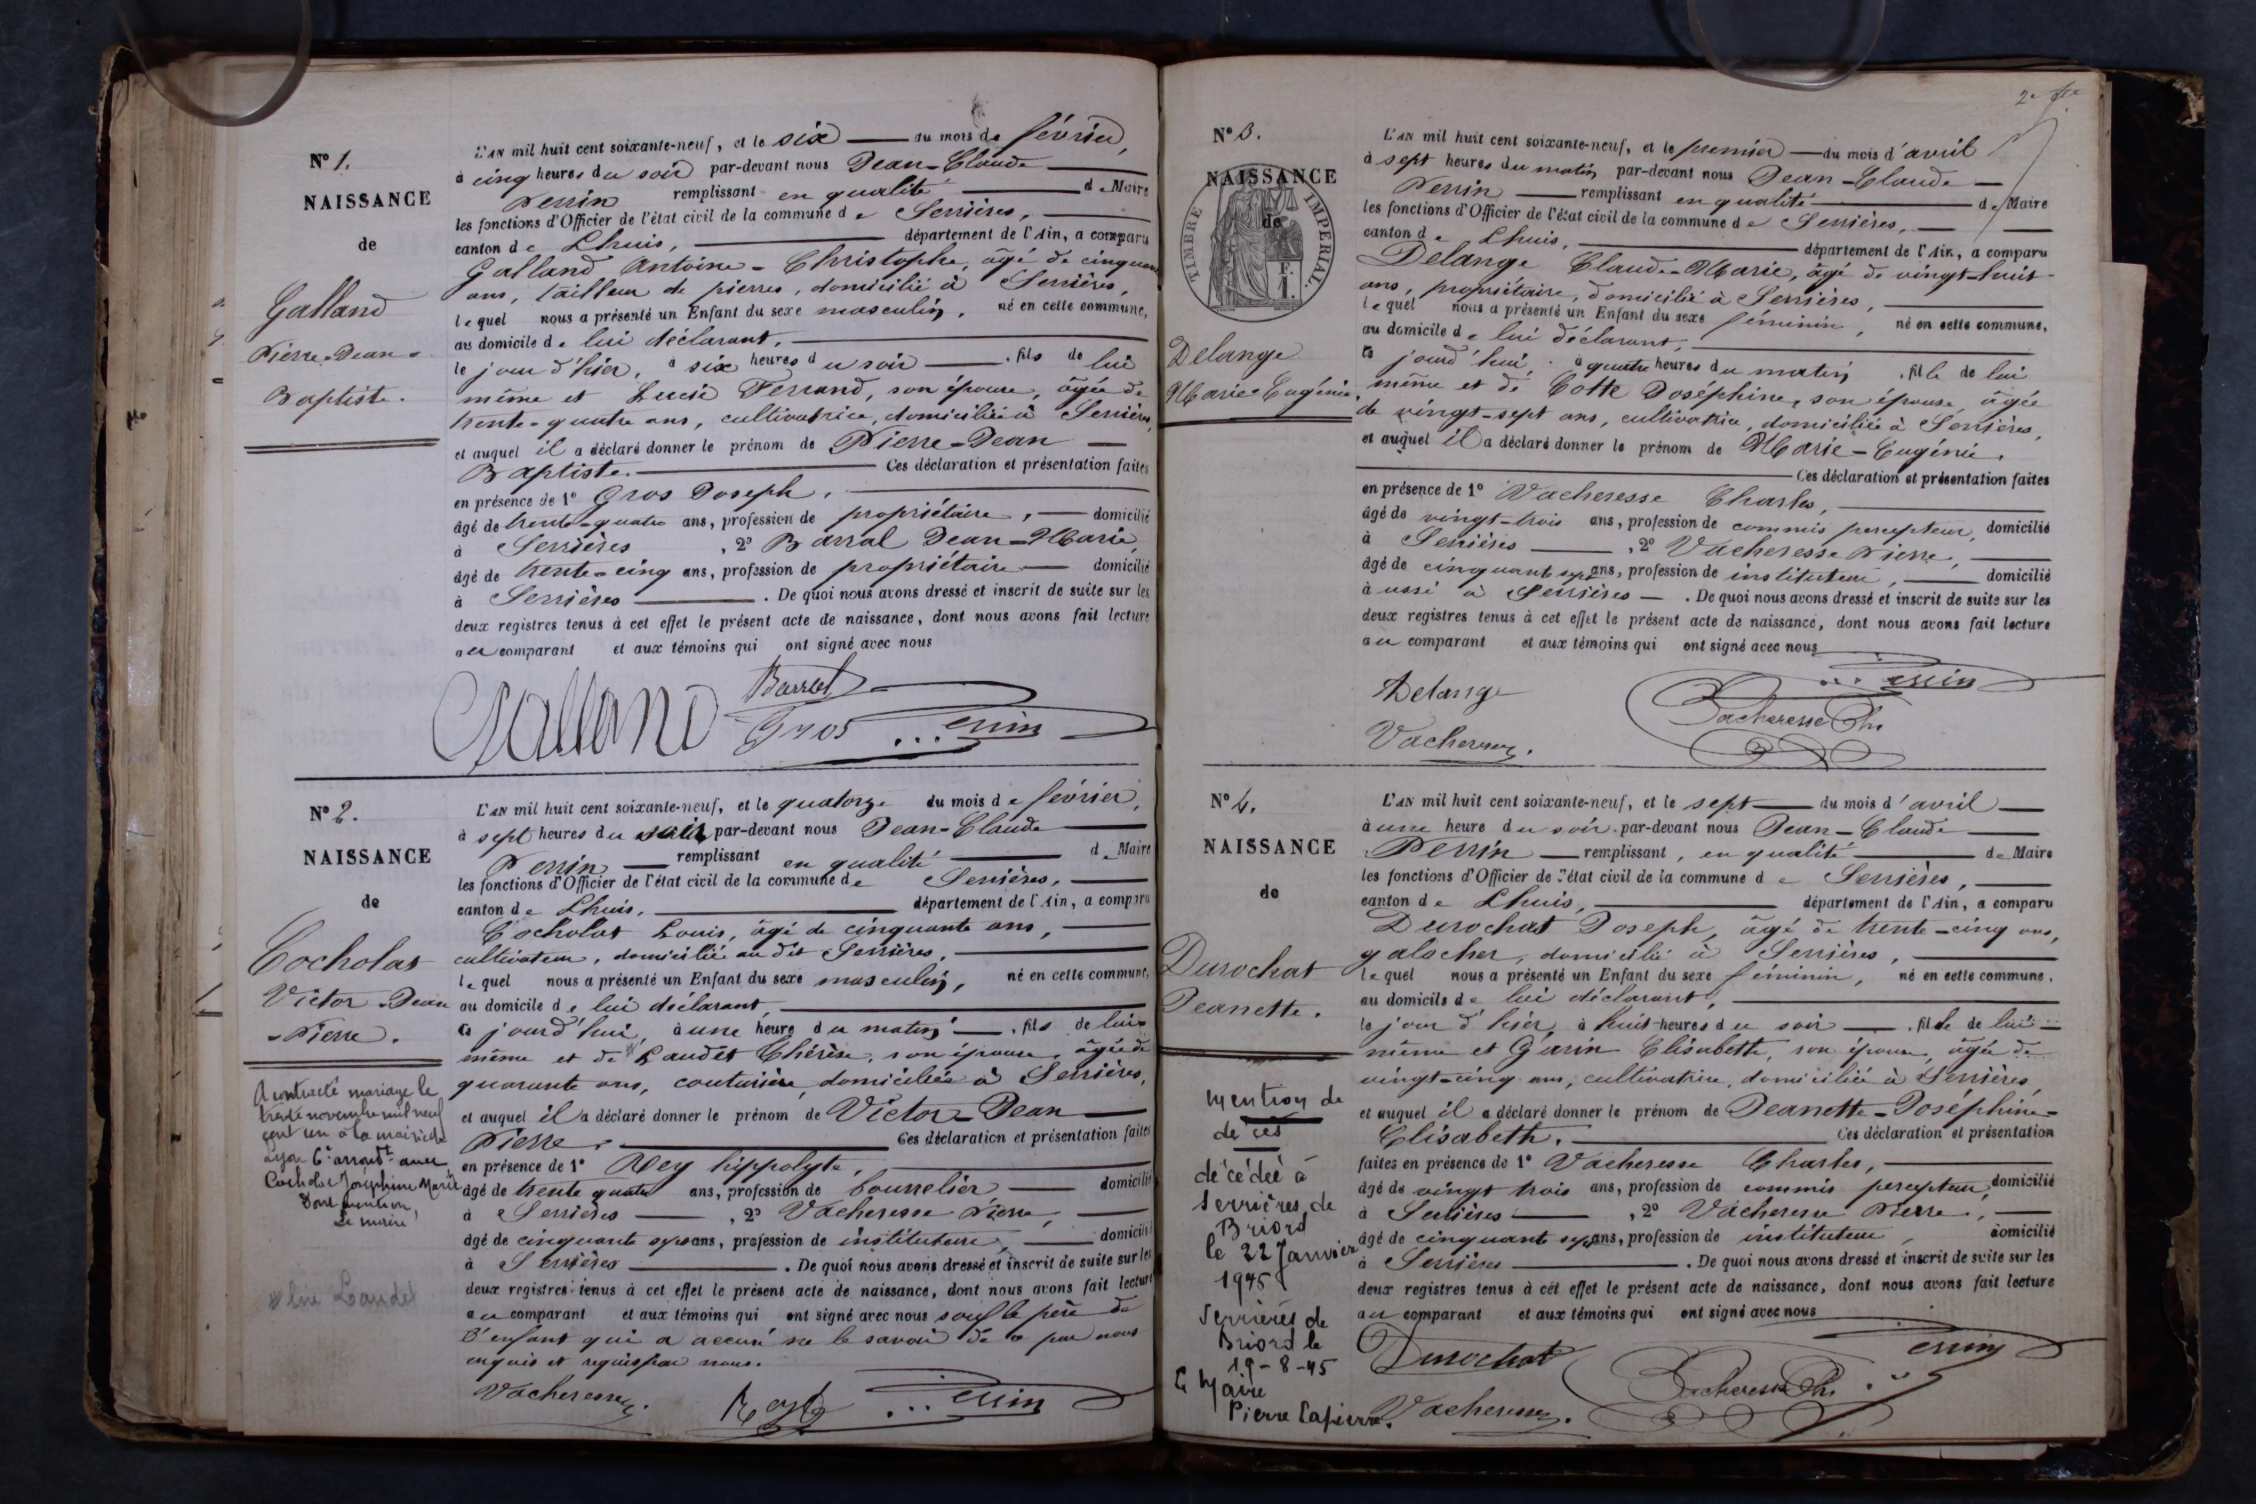 N° 1.
NAISSANCE
de
Galland
Pierre-Jean-
Baptiste.
L'AN mil huit cent soixante-neuf, et le six du mois de février,
à cinq heures du soir par-devant nous Jean-Claude
Perrin remplissant en qualité de Maire
les fonctions d'Officier de l'état civil de la commune de Serrières,
canton de Lhuis, département de l'Ain, a comparu
Galland Antoine-Christophe, âgé de cinquante
ans, tailleur de pierres, domicilié à Serrières,
lequel nous a présenté un Enfant du sexe masculin, né en cette commune,
au domicile de lui déclarant,
le jour d'hier, à six heures du soir, fils de lui
même et Lucie Ferrand, son épouse, âgée de
trente-quatre ans, cultivatrice, domiciliée à Serrières,
et auquel il a déclaré donner le prénom de Pierre-Jean
Baptiste. Ces déclaration et présentation faites
en présence de 1° Gros Joseph,
âgé de trente-quatre ans, profession de propriétaire, domicilié
à Serrières, 2° Barral Jean-Marie,
âgé de trente-cinq ans, profession de propriétaire domicilié
à Serrières. De quoi nous avons dressé et inscrit de suite sur les
deux registres tenus à cet effet le présent acte de naissance, dont nous avons fait lecture
au comparant et aux témoins qui ont signé avec nous
Barral
Galland Gros Perrin
N° 2.
NAISSANCE
de
Cocholat
Victor-Jean
-Pierre.
A contracté mariage le
trente novembre mil neuf
cent un à la mairie de
Lyon 6e arrondt avec
Cocholat Joséphine Marie
Dont mention,
Le maire
lui Laudet
L'AN mil huit cent soixante-neuf, et le quatorze du mois de février,
à sept heures du soir par-devant nous Jean-Claude
Perrin remplissant en qualité de Maire
les fonctions d'Officier de l'état civil de la commune de Serrières,
canton de Lhuis, département de l'Ain, a comparu
Cocholat Louis, âgé de cinquante ans,
cultivateur, domicilié au dit Serrières,
lequel nous a présenté un Enfant du sexe masculin, né en cette commune,
au domicile de lui déclarant,
ce jourd'hui, à une heure du matin, fils de lui
même et de Laudet Thérèse, son épouse, âgée de
quarante ans, couturière, domiciliée à Serrières,
et auquel il a déclaré donner le prénom de Victor-Jean
Pierre. Ces déclaration et présentation faites
en présence de 1° Rey hippolyte,
âgé de trente quatre ans, profession de bourrelier domicilié
à Serrières, 2° Vacheresse Pierre,
âgé de cinquante sept ans, profession de instituteur, domicilié
à Serrières. De quoi nous avons dressé et inscrit de suite sur les
deux registres tenus à cet effet le présent acte de naissance, dont nous avons fait lecture
au comparant et aux témoins qui ont signé avec nous sauf le père de
l'enfant qui a accusé ne le savoir de ce par nous
enquis et requis par nous.
Vacheresse. Rey Perrin
2e fle
N° 3.
NAISSANCE
de
TIMBRE IMPERIAL.
F.
1.
Delange
Marie-Eugénie,
L'AN mil huit cent soixante-neuf, et le premier du mois d'avril
à sept heures du matin par-devant nous Jean-Claude
Perrin remplissant en qualité de Maire
les fonctions d'Officier de l'état civil de la commune de Serrières,
canton de Lhuis, département de l'Ain, a comparu
Delange Claude-Marie, âgé de vingt-huit
ans, propriétaire, domicilié à Serrières,
lequel nous a présenté un Enfant du sexe féminin, né en cette commune,
au domicile de lui déclarant,
ce jourd'hui, à quatre heures du matin, fille de lui
même et de Cotte Joséphine, son épouse, âgée
de vingt-sept ans, cultivatrice, domiciliée à Serrières,
et auquel il a déclaré donner le prénom de Marie-Eugénie.
Ces déclaration et présentation faites
en présence de 1° Vacheresse Charles,
âgé de vingt-trois ans, profession de commis percepteur, domicilié
à Serrières, 2° Vacheresse Pierre,
âgé de cinquante sept ans, profession de instituteur, domicilié
aussi à Serrières. De quoi nous avons dressé et inscrit de suite sur les
deux registres tenus à cet effet le présent acte de naissance, dont nous avons fait lecture
au comparant et aux témoins qui ont signé avec nous
Delange Perrin
Vacheresse Ch.
Vacheresse.
N° 4.
NAISSANCE
de
Durochat
Jeanette.
Mention de
décès
décédée à
Serrières de
Briord
le 22 Janvier
1945
Serrières de
Briord le
19-8-45
Le Maire
Pierre Lapierre.
L'AN mil huit cent soixante-neuf, et le sept du mois d'avril
à une heure du soir par-devant nous Jean-Claude
Perrin remplissant, en qualité de Maire
les fonctions d'Officier de l'état civil de la commune de Serrières,
canton de Lhuis, département de l'Ain, a comparu
Durochat Joseph, âgé de trente-cinq ans,
galocher, domicilié à Serrières,
lequel nous a présenté un Enfant du sexe féminin, né en cette commune,
au domicile de lui déclarant,
le jour d'hier, à huit heures du soir, fille de lui
même et Garin Elisabeth, son épouse, âgée de
vingt-cinq ans, cultivatrice, domiciliée à Serrières,
et auquel il a déclaré donner le prénom de Jeanette-Joséphine-
Elisabeth. Ces déclaration et présentation
faites en présence de 1° Vacheresse Charles,
âgé de vingt trois ans, profession de commis percepteur, domicilié
à Serrières, 2° Vacheresse Pierre,
âgé de cinquante sept ans, profession de instituteur, domicilié
à Serrières. De quoi nous avons dressé et inscrit de suite sur les
deux registres tenus à cet effet le présent acte de naissance, dont nous avons fait lecture
au comparant et aux témoins qui ont signé avec nous
Durochat Perrin
Vacheresse Ch.
Vacheresse.